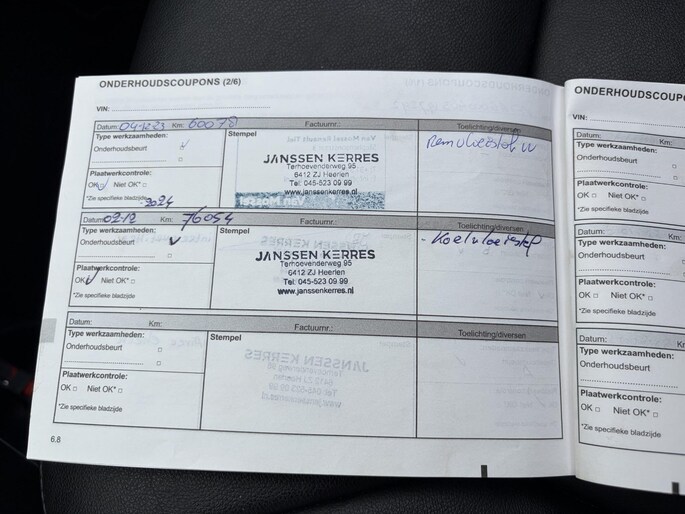 ONDERHOUDSCOUPONS (2/6)
VIN:
Datum: 04.12.23 Km: 60078 Factuurnr.: Toelichting/diversen
Type werkzaamheden:
Onderhoudsbeurt
Stempel
Remvloeistof
JANSSEN KERRES
Terhoevenderweg 95
6412 ZJ Heerlen
Tel: 045-523 09 99
www.janssenkerres.nl
Van Mossel
Plaatwerkcontrole:
OK Niet OK*
*Zie specifieke bladzijde
2024
Datum: 02.12 Km: 76054 Factuurnr.: Toelichting/diversen
Type werkzaamheden:
Onderhoudsbeurt
Stempel
- Koelvloeistof
JANSSEN KERRES
Terhoevenderweg 95
6412 ZJ Heerlen
Tel: 045-523 09 99
www.janssenkerres.nl
Plaatwerkcontrole:
OK Niet OK*
*Zie specifieke bladzijde
Datum: Km: Factuurnr.: Toelichting/diversen
Type werkzaamheden:
Onderhoudsbeurt
Stempel
Plaatwerkcontrole:
OK Niet OK*
*Zie specifieke bladzijde
6.8
ONDERHOUDSCOUPO
VIN:
Datum: Km:
Type werkzaamheden:
Onderhoudsbeurt
Plaatwerkcontrole:
OK Niet OK*
*Zie specifieke bladzijde
Datum: Km:
Type werkzaamheden:
Onderhoudsbeurt
Plaatwerkcontrole:
OK Niet OK*
*Zie specifieke bladzijde
Datum: Km:
Type werkzaamheden:
Onderhoudsbeurt
Plaatwerkcontrole:
OK Niet OK*
*Zie specifieke bladzijde